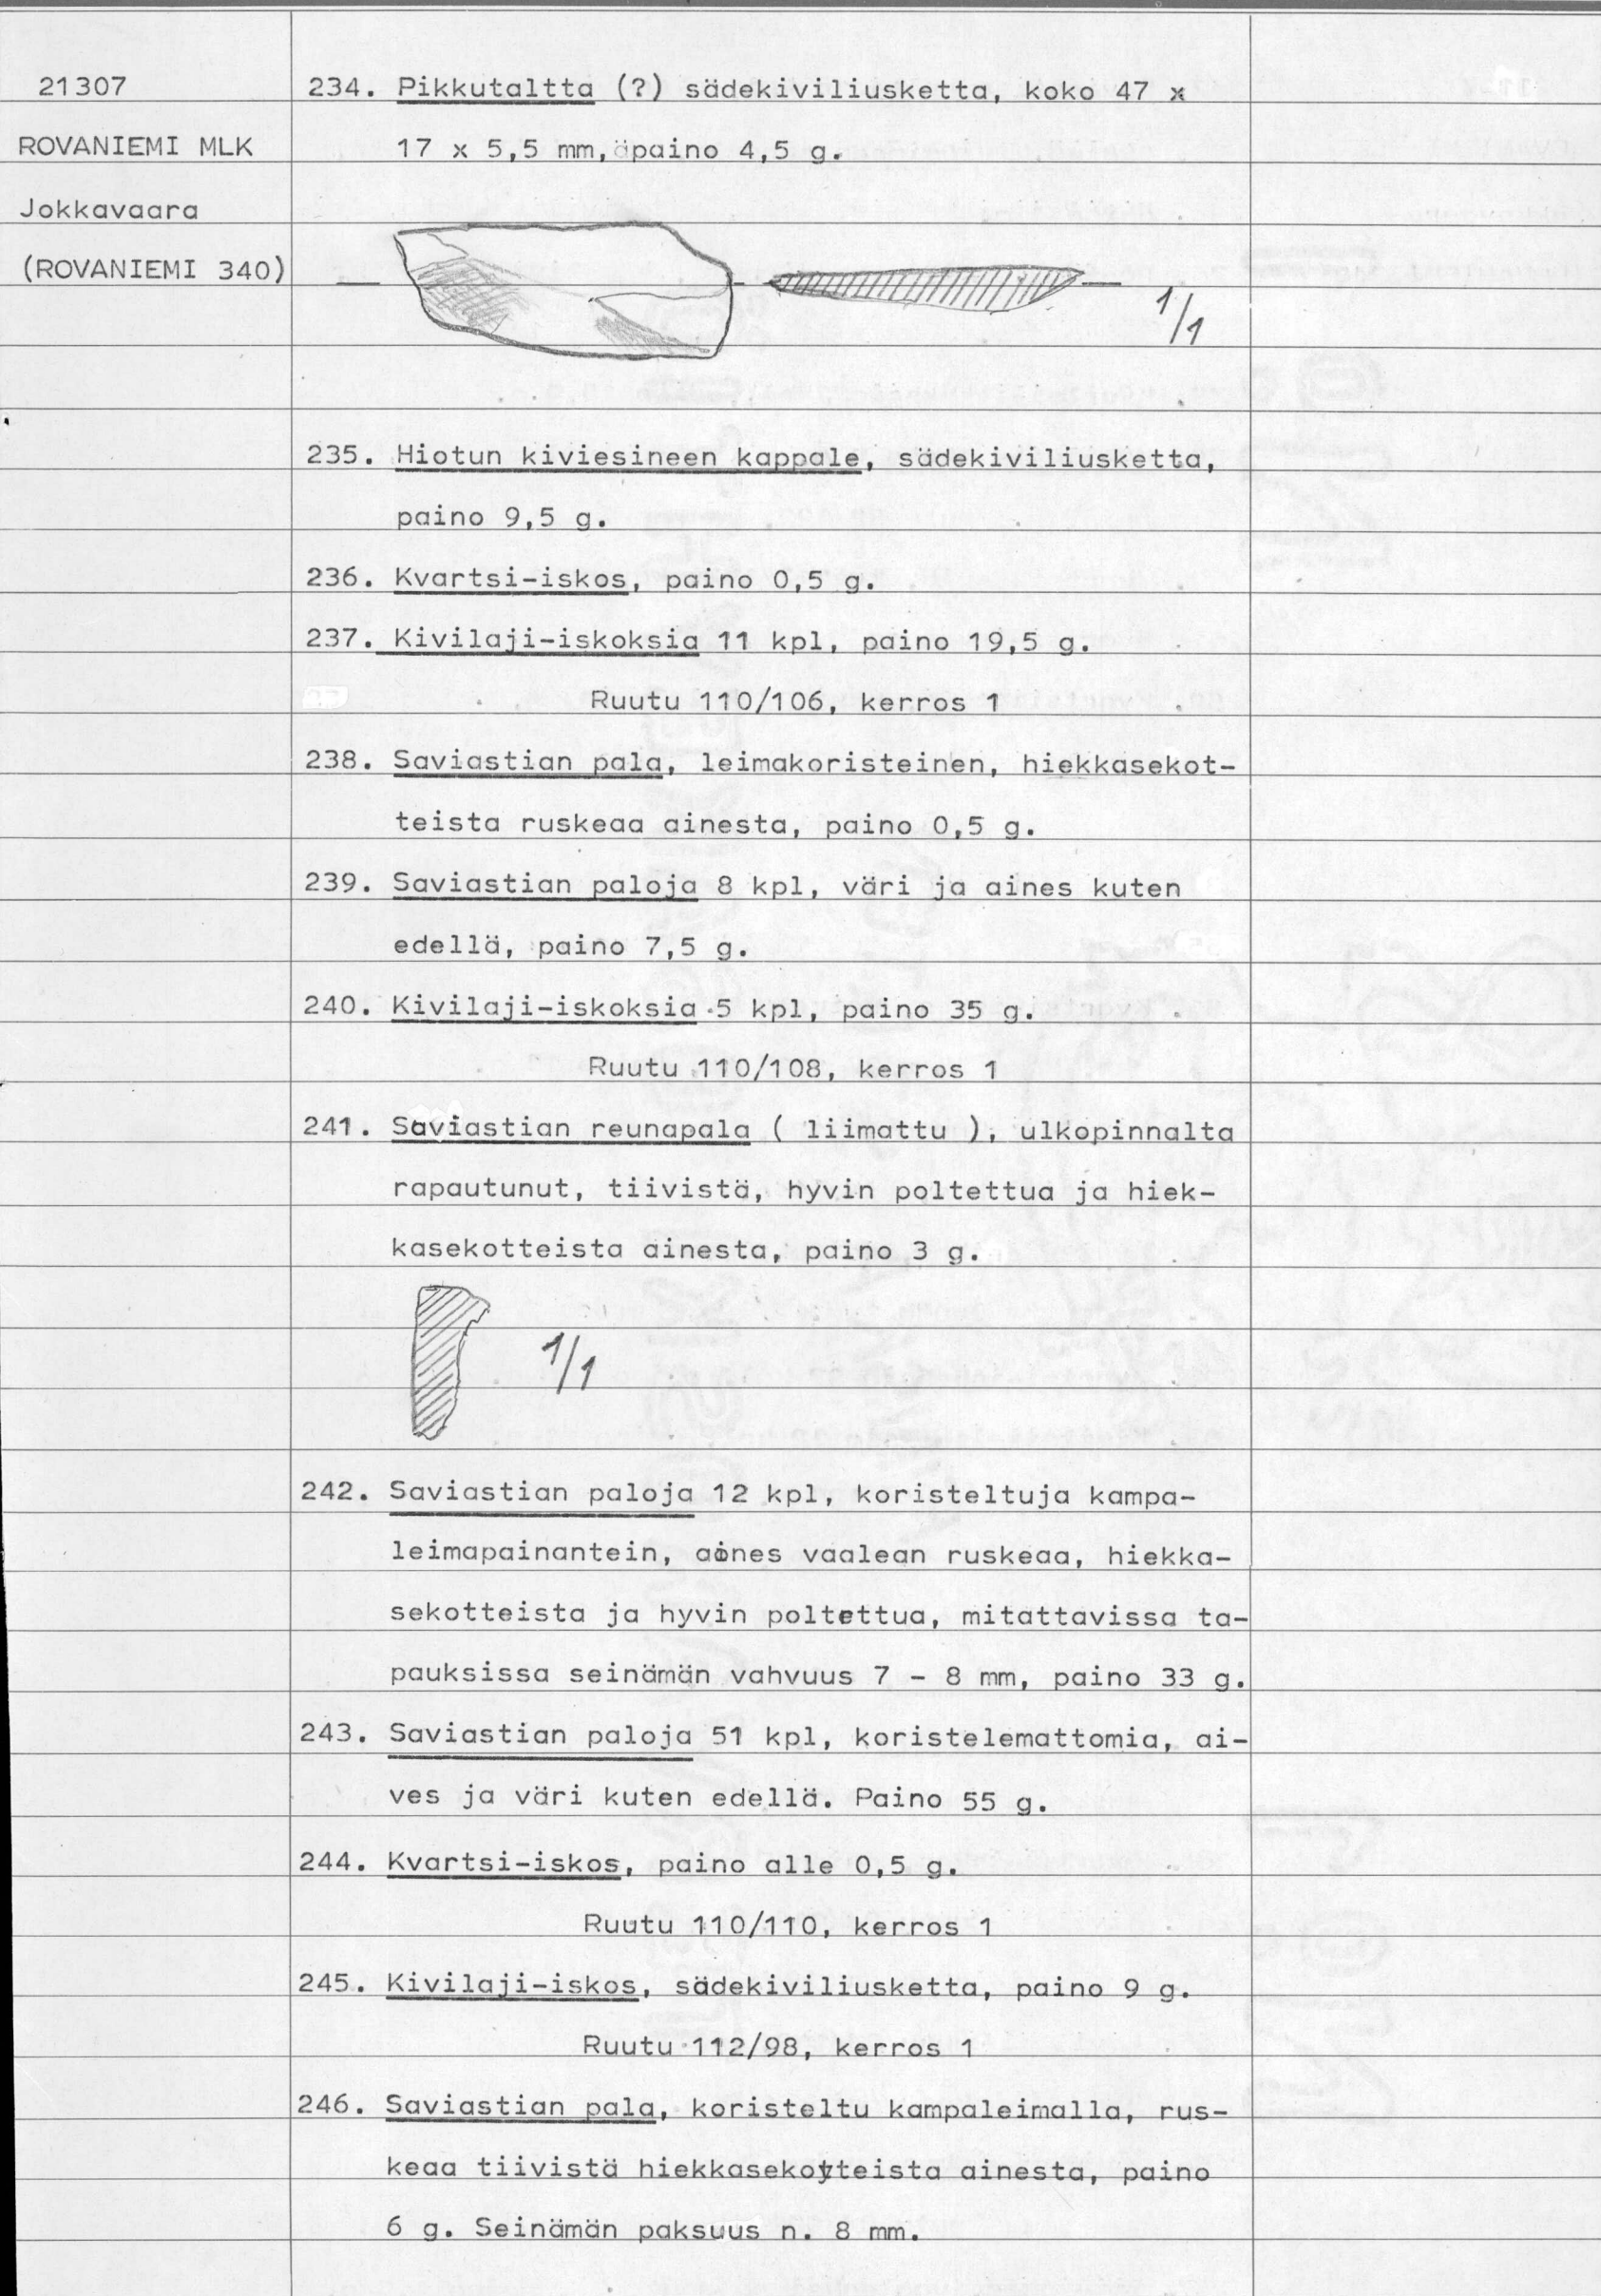 21307
ROVANIEMI MLK
Jokkavaara
(ROVANIEMI 340)
234. Pikkutaltta (?) sädekiviliusketta, koko 47 x
17 x 5,5 mm, paino 4,5 g.
1/1
235. Hiotun kiviesineen kappale, sädekiviliusketta,
paino 9,5 g.
236. Kvartsi-iskos, paino 0,5 g.
237. Kivilaji-iskoksia 11 kpl, paino 19,5 g.
Ruutu 110/106, kerros 1
238. Saviastian pala, leimakoristeinen, hiekkasekot-
teista ruskeaa ainesta, paino 0,5 g.
239. Saviastian paloja 8 kpl, väri ja aines kuten
edellä, paino 7,5 g.
240. Kivilaji-iskoksia 5 kpl, paino 35 g.
Ruutu 110/108, kerros 1
241. Saviastian reunapala ( liimattu ), ulkopinnalta
rapautunut, tiivistä, hyvin poltettua ja hiek-
kasekotteista ainesta, paino 3 g.
1/1
242. Saviastian paloja 12 kpl, koristeltuja kampa-
leimapainantein, aines vaalean ruskeaa, hiekka-
sekotteista ja hyvin poltettua, mitattavissa ta-
pauksissa seinämän vahvuus 7 - 8 mm, paino 33 g.
243. Saviastian paloja 51 kpl, koristelemattomia, ai-
ves ja väri kuten edellä. Paino 55 g.
244. Kvartsi-iskos, paino alle 0,5 g.
Ruutu 110/110, kerros 1
245. Kivilaji-iskos, sädekiviliusketta, paino 9 g.
Ruutu 112/98, kerros 1
246. Saviastian pala, koristeltu kampaleimalla, rus-
keaa tiivistä hiekkasekotteista ainesta, paino
6 g. Seinämän paksuus n. 8 mm.